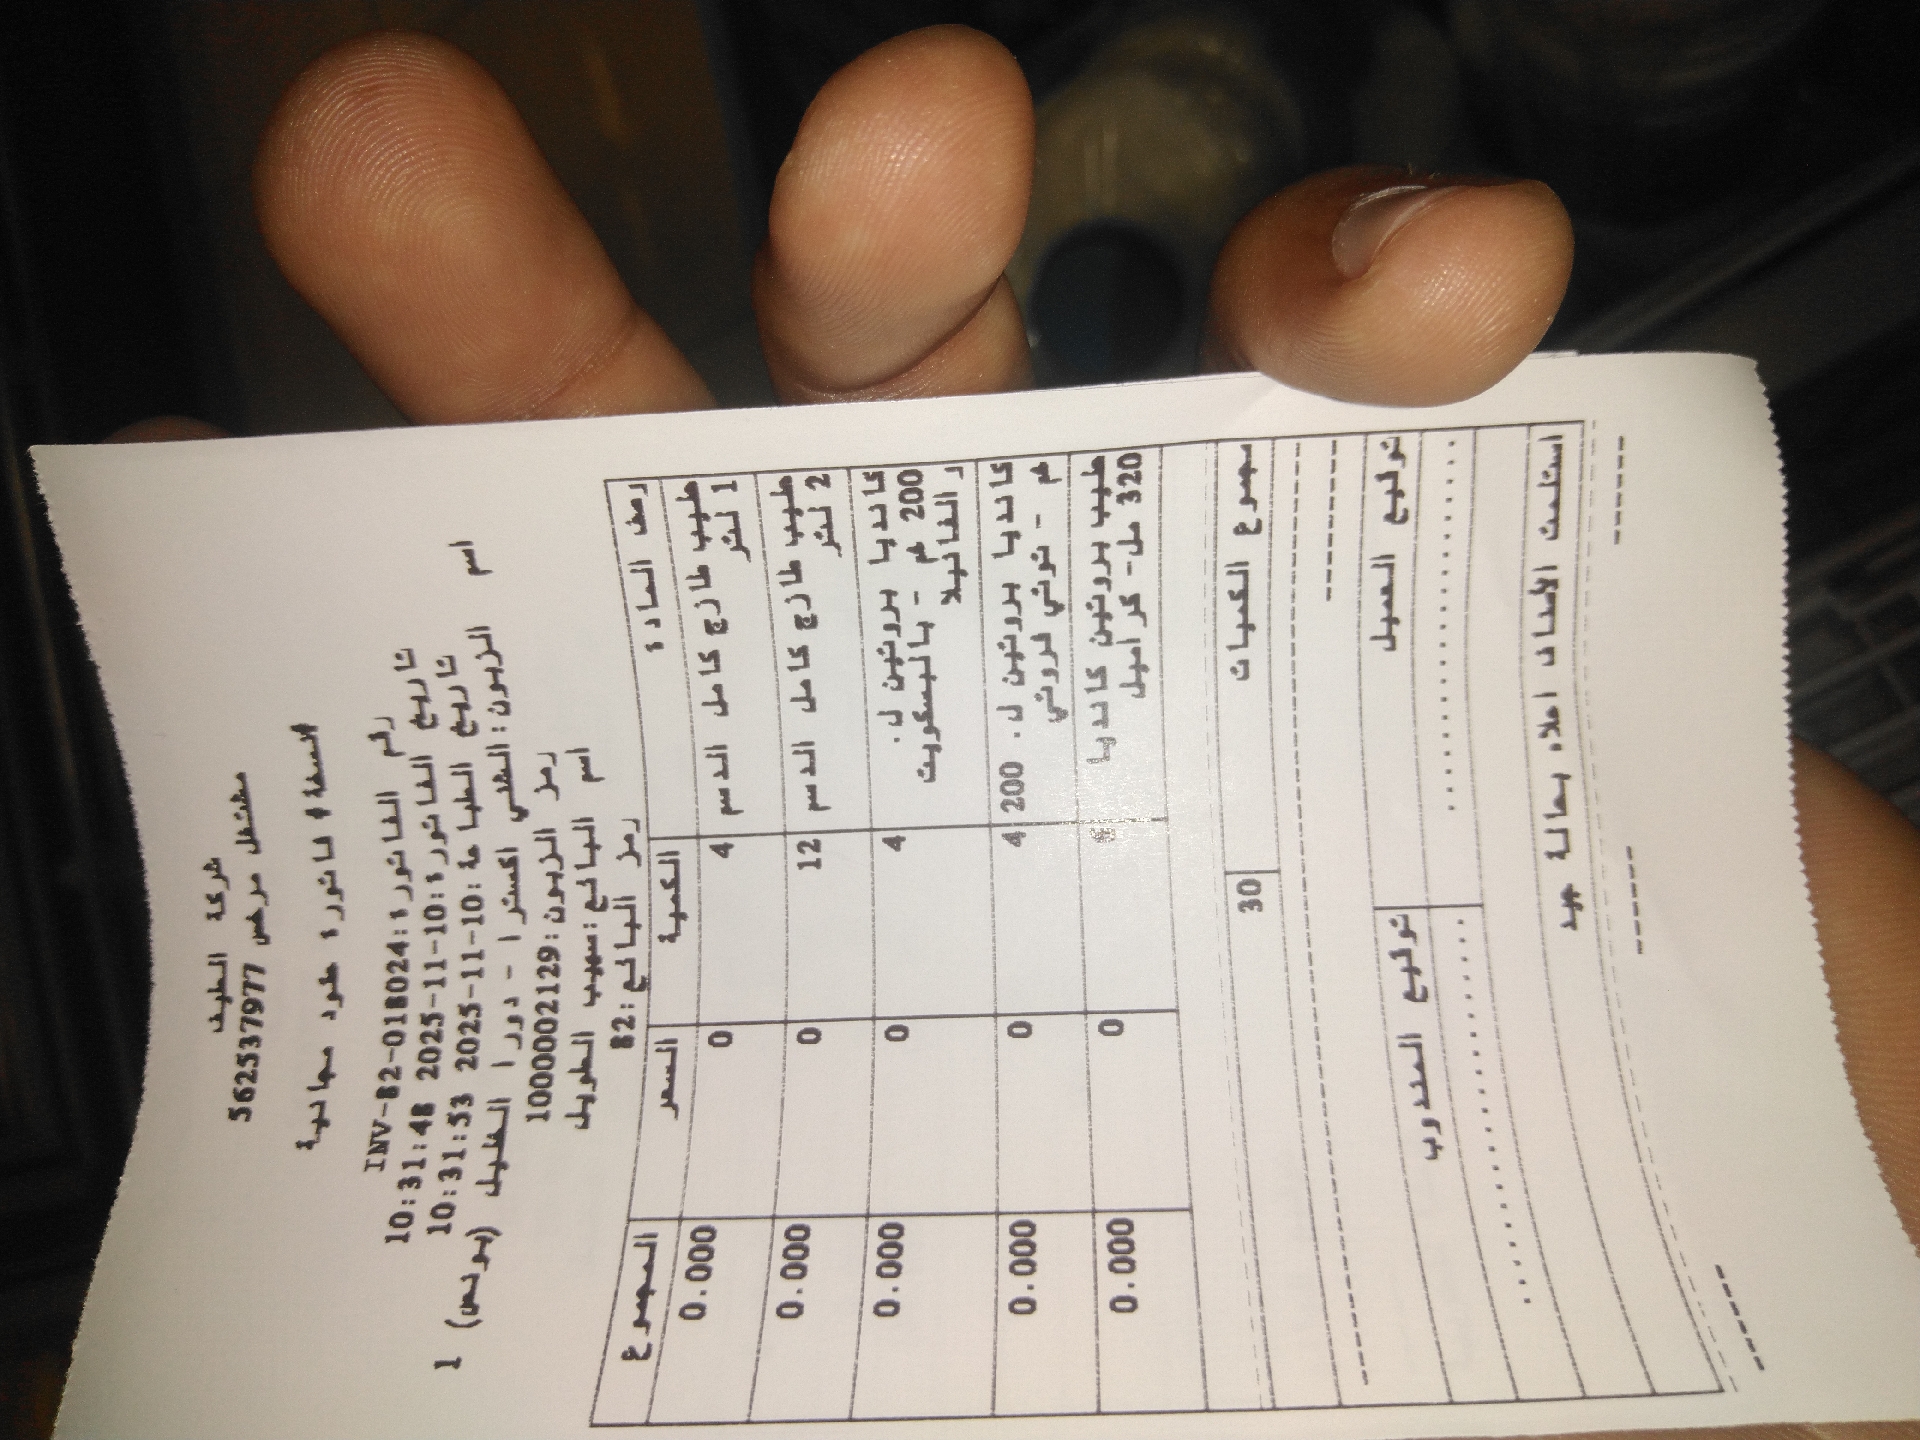 شركة الطيف
مشتغل مرخص 562537977
النسخة# فاتورة طرد مجانية
رقم الفاتورة: INV-82-018024
تاريخ الفاتورة: 2025-11-10 10:31:48
تاريخ الطباعة: 2025-11-10 10:31:53
اسم الزبون: التقي اكسترا - دورا الخليل (يونس) 1
رمز الزبون: 1000002129
اسم البائع: صهيب الطويل
رمز البائع: 82
وصف المادة الكمية السعر المجموع
طيب طازج كامل الدسم 4 0 0.000
1 لتر
طيب طازج كامل الدسم 12 0 0.000
2 لتر
كانديا بروتين ل. 4 0 0.000
200 غم - بالبسكويت
و الفانيلا
كانديا بروتين ل. 200 4 0 0.000
غم - توتي فروتي
حليب بروتين كانديا 0 0.000
320 مل- كراميل
مجموع الكميات 30
توقيع العميل توقيع المندوب
استلمت الأصناف اعلاه بحالة جيد